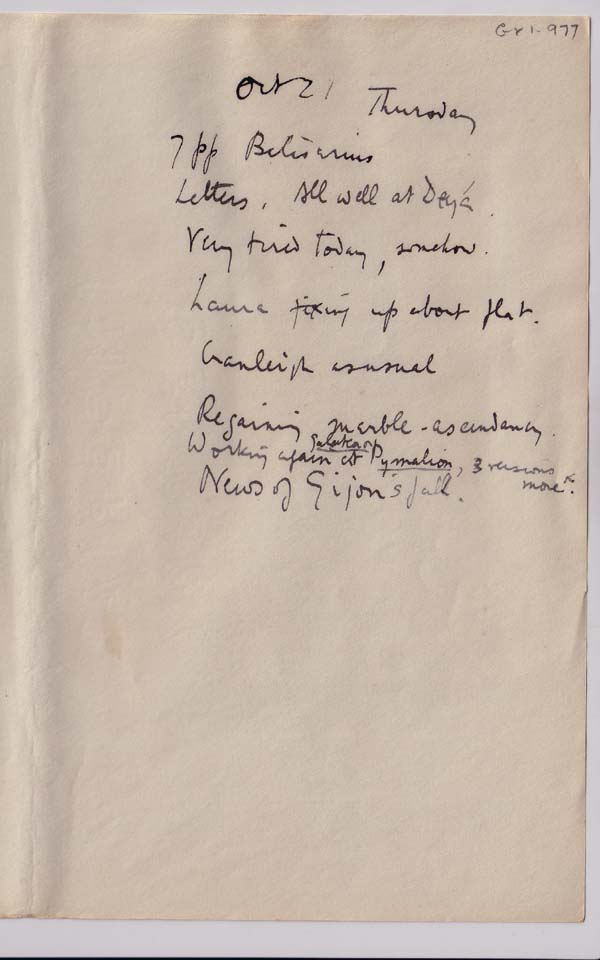 Gr 1-977
Oct 21 Thursday
7 pp Belisarius
Letters. All well at Deyá.
Very tired today, somehow.
Laura fixing up about flat.
Ganleigh as usual
Regaining marble-ascendancy.
Galatea or
Working again at Pymalion, 3 versions
more.
News of Gijon's fall.